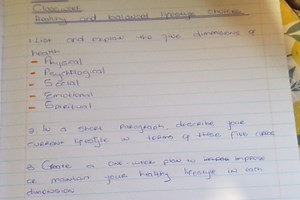 Classwork
Healthy and balanced lifestyle choices
1. List and explain the five dimensions of
health
- Physical
- Psychological
- Social
- Emotional
- Spiritual
2. In a short Paragraph, describe your
current lifestyle in terms of these five areas
3. Create a one-week plan to improve
or maintain your healthy lifestyle in each
dimension